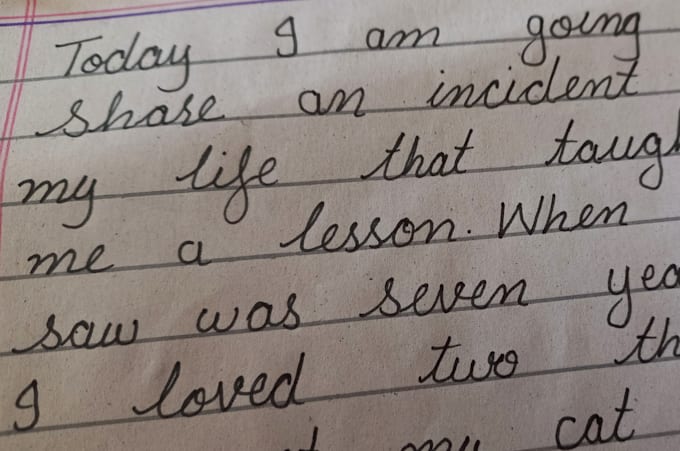 Today I am going
share an incident
my life that taugh
me a lesson. When
saw was seven yea
I loved two th
my cat